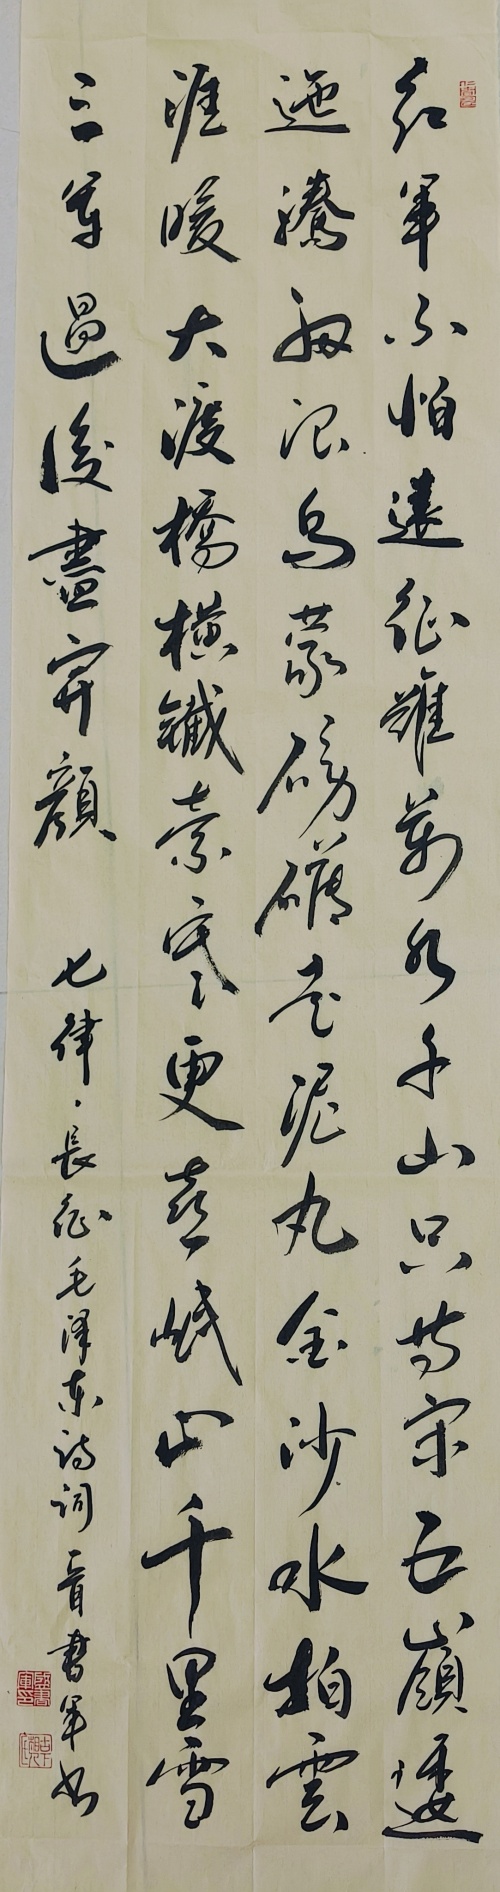 紅軍不怕遠征難萬水千山只等閑五嶺逶
迤騰細浪烏蒙磅礴走泥丸金沙水拍雲
涯暖大渡橋橫鐵索寒更喜岷山千里雪
三軍過後盡開顏 七律·長征毛澤東詩詞 書軍書